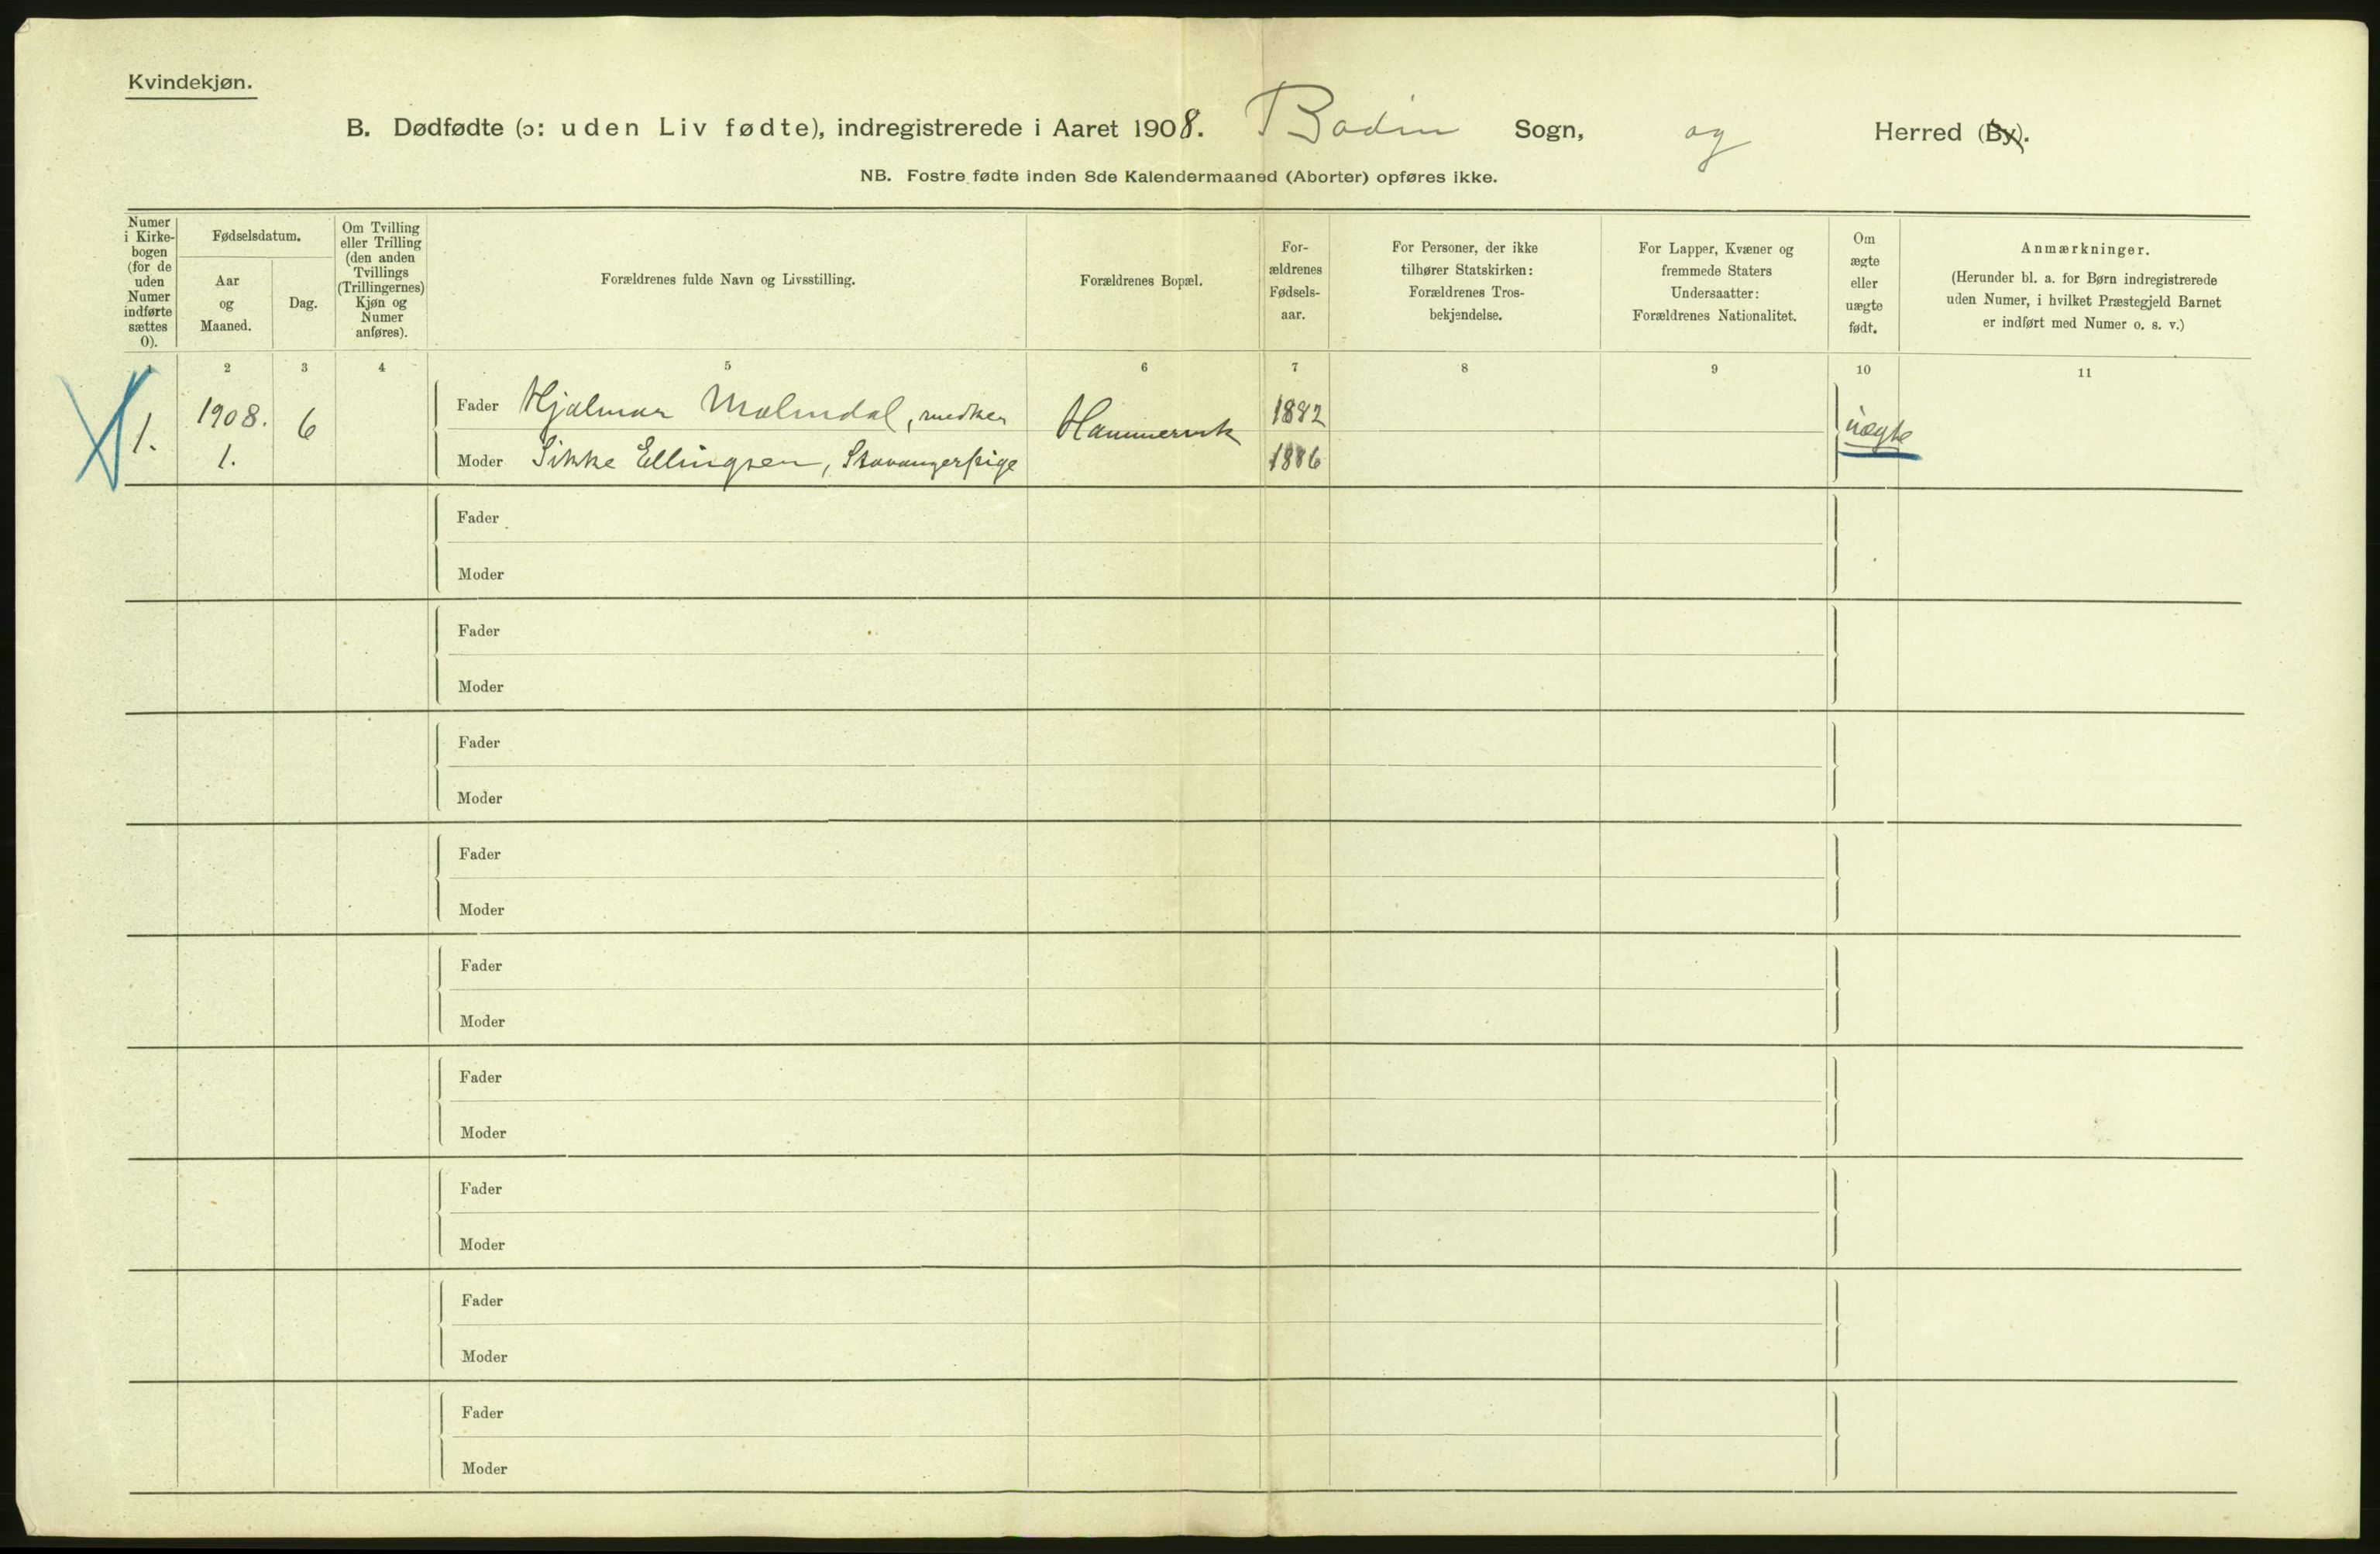 Kvindekjøn.
B. Dødfødte (ɔ: uden Liv fødte), indregistrerede i Aaret 1908. Bodin Sogn, og Herred (By).
NB. Fostre fødte inden 8de Kalendermaaned (Aborter) opføres ikke.
Numer i Kirke-bogen (for de uden Numer indførte sættes 0).
Fødselsdatum.
Aar og Maaned.
Dag.
Om Tvilling eller Trilling (den anden Tvillings (Trillingernes) Kjøn og Numer anføres).
Forældrenes fulde Navn og Livsstilling.
Forældrenes Bopæl.
For-ældrenes Fødsels-aar.
For Personer, der ikke tilhører Statskirken: Forældrenes Tros-bekjendelse.
For Lapper, Kvæner og fremmede Staters Undersaatter: Forældrenes Nationalitet.
Om ægte eller uægte født.
Anmærkninger.
(Herunder bl. a. for Børn indregistrerede uden Numer, i hvilket Præstegjeld Barnet er indført med Numer o. s. v.)
1 2 3 4 5 6 7 8 9 10 11
1. 1908. 6 Fader Hjalmar Malmdal, Hammervik 1882 uægte
1. Moder Sikke Ellingsen, 1886
Fader
Moder
Fader
Moder
Fader
Moder
Fader
Moder
Fader
Moder
Fader
Moder
Fader
Moder
Fader
Moder
Fader
Moder